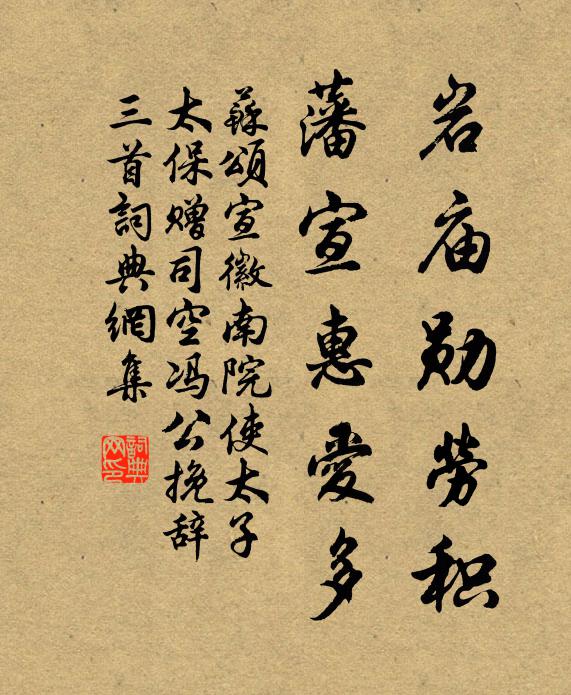 岩庙勋劳积
藩宣惠爱多
蘇頌宣徽南院使太子
太保赠司空冯公挽辞
三首詞典網集
詞典网印